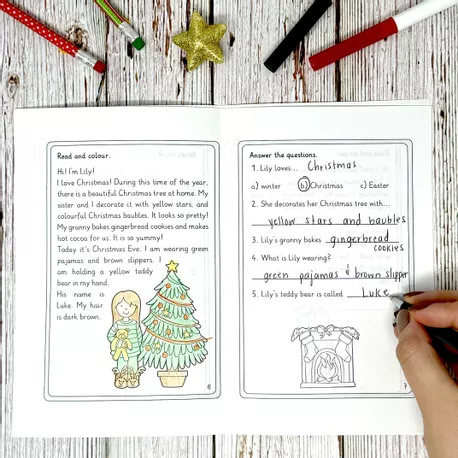 Read and colour.
Hi! I'm Lily!
I love Christmas! During this time of the year,
there is a beautiful Christmas tree at home. My
sister and I decorate it with yellow stars, and
colourful Christmas baubles. It looks so pretty!
My granny bakes gingerbread cookies and makes
hot cocoa for us. It is so yummy!
Today it's Christmas Eve. I am wearing green
pajamas and brown slippers. I
am holding a yellow teddy
bear in my hand.
His name is
Luke. My hair
is dark brown.
6
Answer the questions.
1. Lily loves... Christmas
a) winter b) Christmas c) Easter
2. She decorates her Christmas tree with...
yellow stars and baubles
3. Lily's granny bakes gingerbread
cookies
4. What is Lily wearing?
green pajamas & brown slipper
5. Lily's teddy bear is called Luke
7